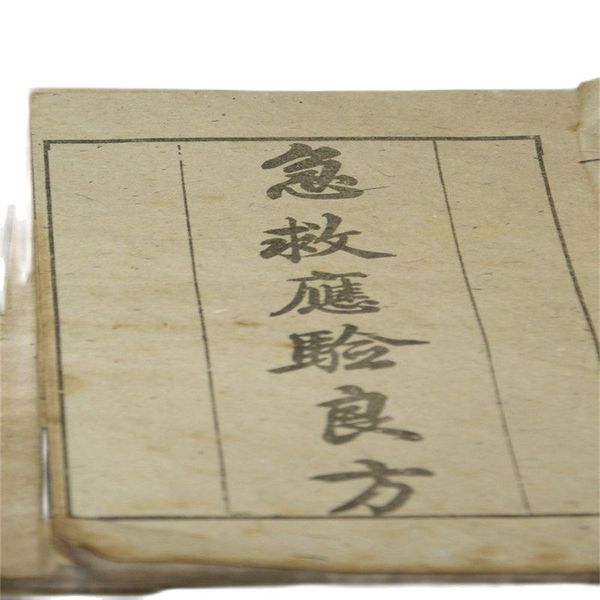 急救應騐良方